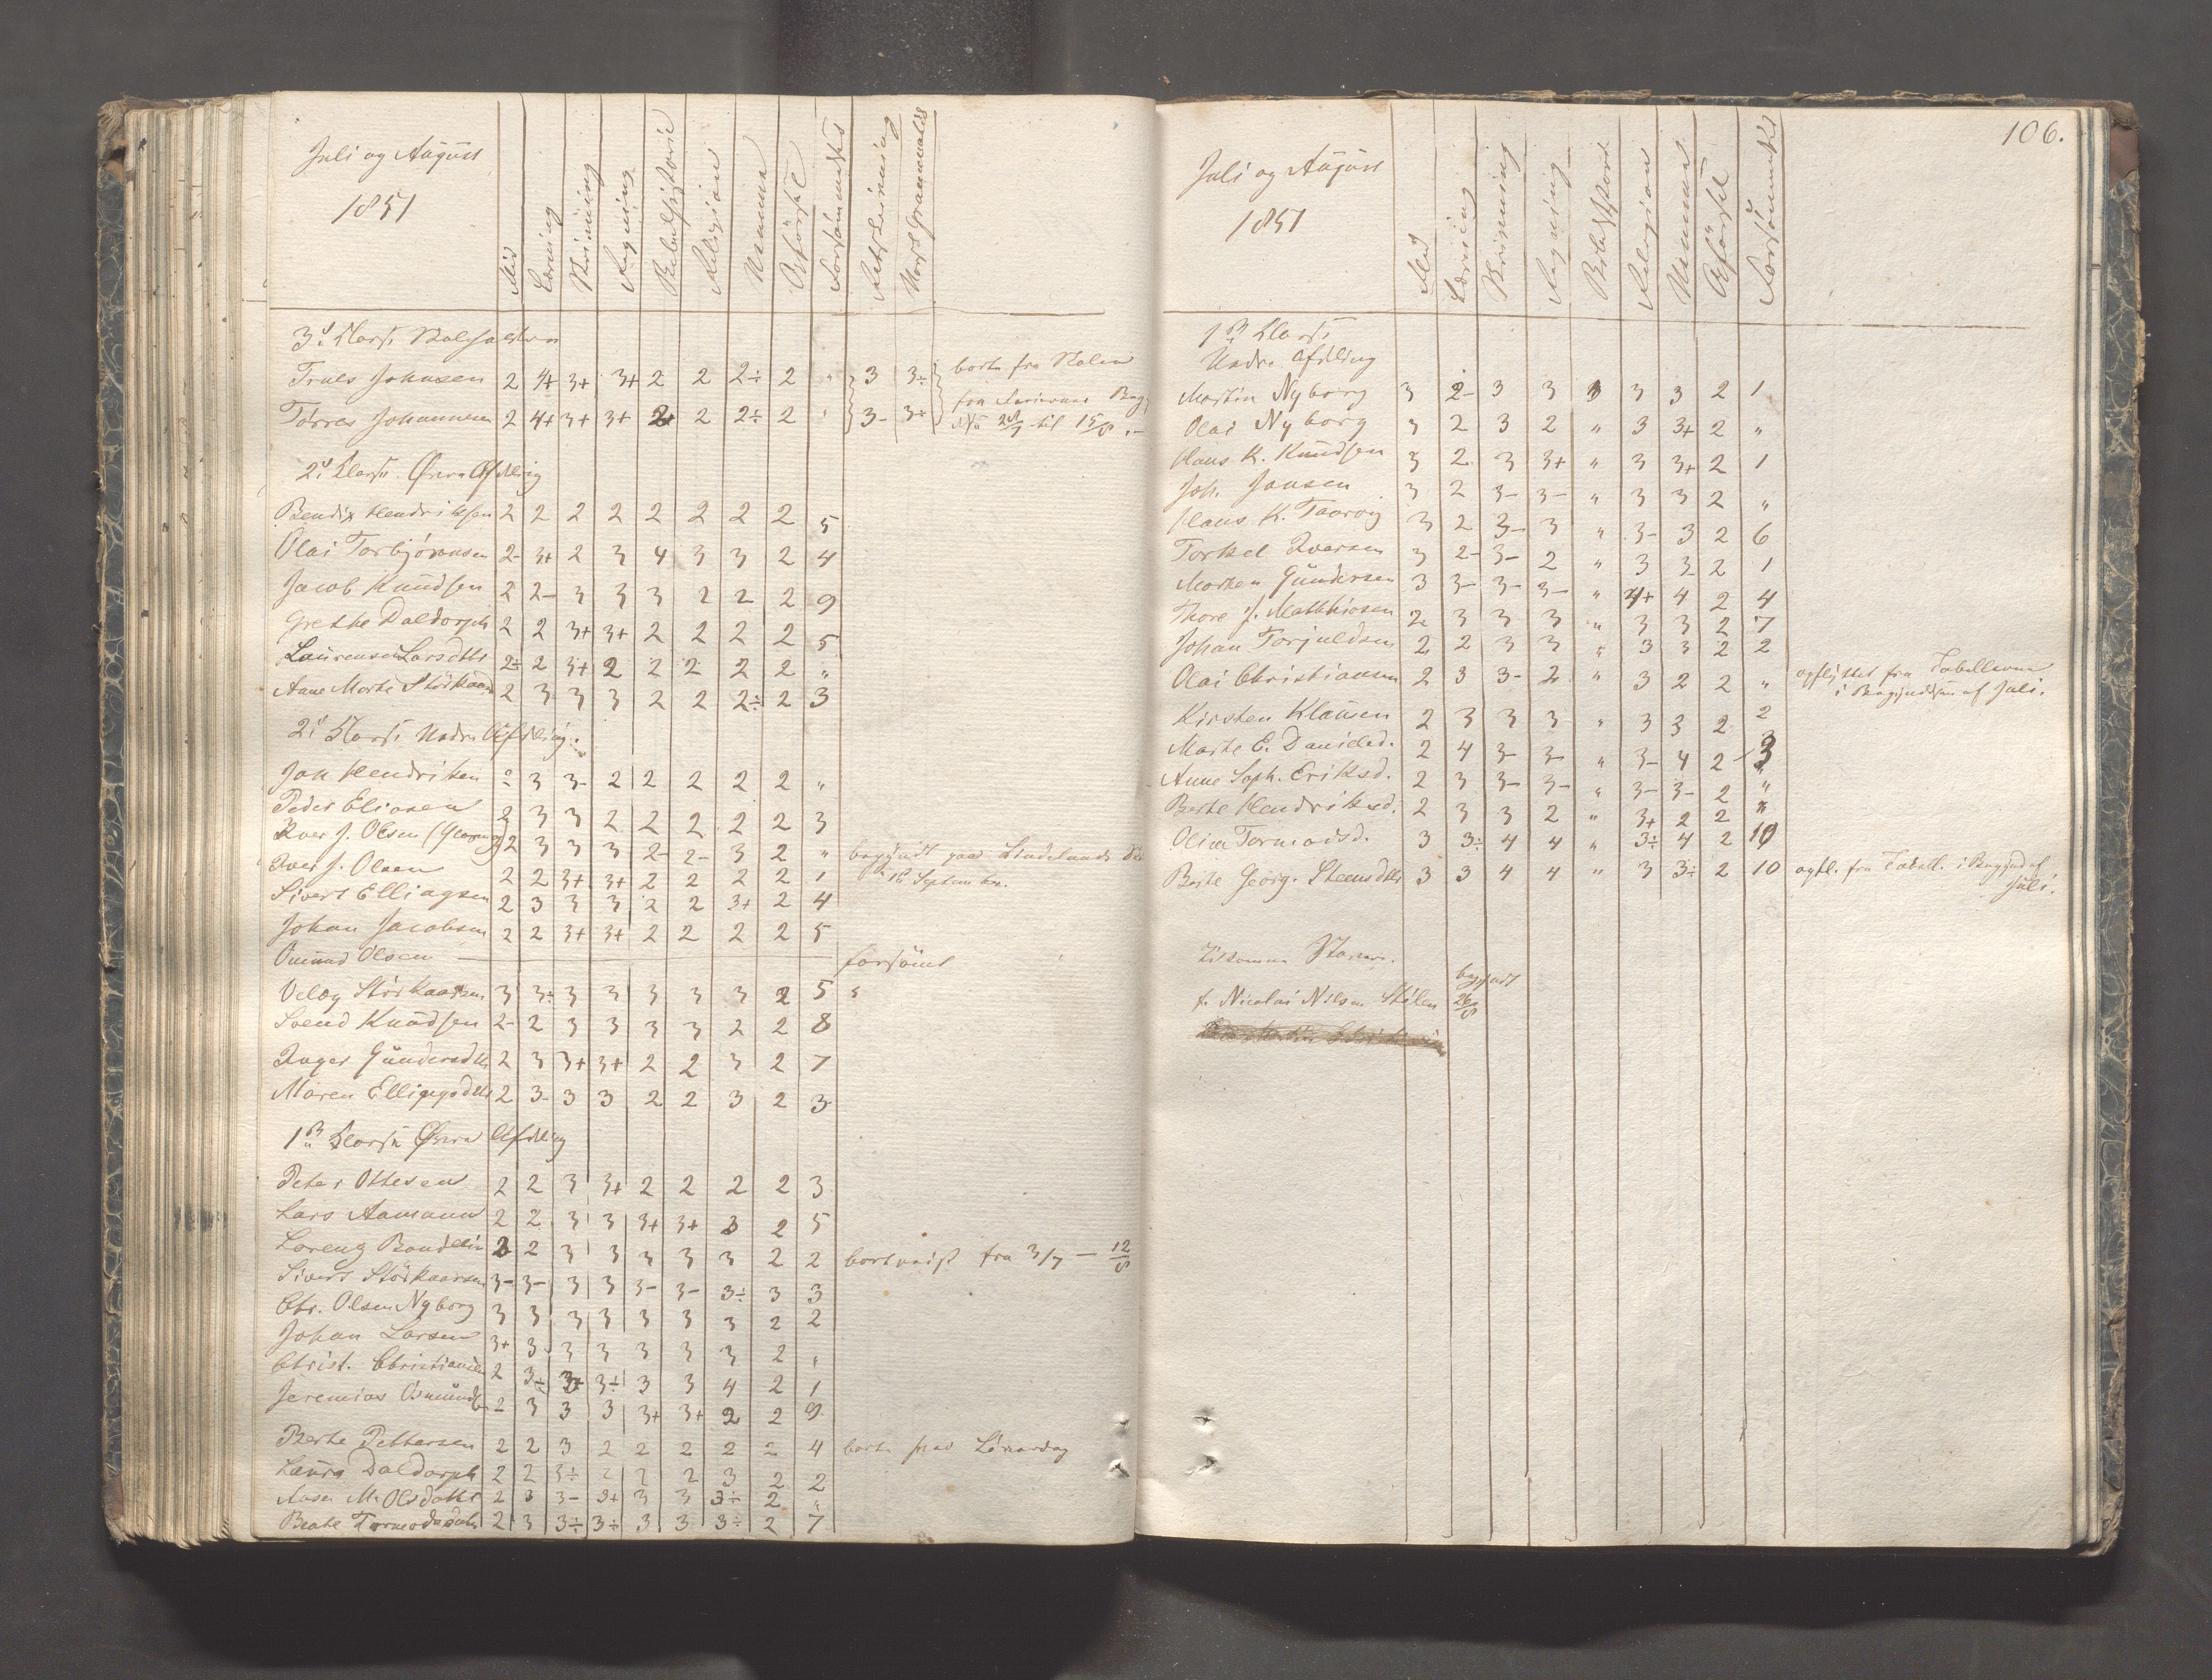 Juli og August
1851
Flid Læsning Skrivning Regning Bibelhistorie Religion Udenad Opførsel Forsømmelse Retskrivning Norsk Grammatik
3die Klasse
Truls Johnsen 2 4+ 3+ 3+ 2 2 2÷ 2 " 3 3÷ borte fra Skolen
Torres Johannesen 2 4+ 3+ 3+ 2+ 2 2÷ 2 " 3- 3÷ fra til 15/8
2den Klasse Øvre Afdeling
Bendix Hendriksen 2 2 2 2 2 2 2 2 5
Olai Torbjörnsen 2- 3+ 2 3 4 3 3 2 4
Jacob Knudsen 2 2- 3 3 3 2 2 2 9
Grethe Daldorph 2 2 3+ 3+ 2 2 2 2 5
Laurense Larsdttr 2÷ 2 3+ 2 2 2 2 2 "
Anne Marte 2 3 3 3 2 2 2÷ 2 3
2den Klasse Nedre Afdeling.
Jon Hendriksen 2 3 3- 2 2 2 2 2 "
Peder Eliasen 2 3 3 2 2 2 2 2 3
Iver J. Olsen 2 3 3 3 2- 2- 3 2 " begyndt paa
Iver J. Olsen 2 2 3+ 3+ 2 2 2 2 1 16 September.
Sivert Ellingsen 2 3 3 3 2 2 3+ 2 4
Johan Jacobsen 2 2 3+ 3+ 2 2 2 2 5
Omund Olsen — forsömt
Velög Störkaarsen 3 3÷ 3 3 3 3 3 2 5
Svend Knudsen 2- 2 3 3 3 3 2 2 8
Inger Gundersdttr 2 3 3+ 3+ 2 2 3 2 7
Maren Ellingsdttr 2 3- 3 3 2 2 3 2 3
1ste Klasse Øvre Afdeling
Peter Ottesen 2 2 3 3+ 2 2 2 2 3
Lars Aamann 2 2 3 3 3+ 3+ 3 2 5
Lorenz 2 2 3 3 3 3 3 2 2 bortreist fra 3/7 — 12/8
Sivert Störkaarsen 3- 3- 3 3 3- 3- 3÷ 3 3
Chr. Olsen Nyborg 3 3 3 3 3 3 3 2 2
Johan Larsen 3+ 3 3 3 3 3 3 2 "
Christ. Christiansen 2 3÷ 3+ 3÷ 3 3 4 2 1
Jeremias Osmundsen 2 3 3 3 3+ 3+ 2 2 9
Berte Pettersen 2 2 3 2 2 2 2 2 4 borte hver Löverdag
Laura Daldorph 2 2 3÷ 2 2 2 3 2 2
M. Olsdatter 2 3 3- 3+ 3 3 3÷ 2 "
Beate Tormodsdatter 2 3 3÷ 3÷ 3 3 3÷ 2 7
106.
Juli og August
1851
Flid Læsning Skrivning Regning Bibelhistorie Religion Udenad Opførsel Forsömmelse
1ste Klasse
Nedre Afdeling
Martin Nyborg 3 2- 3 3 3 3 3 2 1
Olai Nyborg 3 2 3 2 " 3 3+ 2 "
Hans K. Knudsen 3 2 3 3+ " 3 3+ 2 1
Joh. Jansen 3 2 3- 3- " 3 3 2 "
Hans K. Taarvig 3 2 3- 3 " 3- 3 2 6
Torkel Iversen 3 2- 3- 2 " 3 3 2 1
Morten Gundersen 3 3- 3- 3- " 4+ 4 2 4
Thore J. Mathhiasen 2 3 3 3 " 3 3 2 7
Johan Torjuldsen 2 2 3 3 " 3 3 2 2
Olai Christiansen 2 3 3- 2 " 3 2 2 " opflyttet fra Tabellerne
i Begyndelsen af Juli.
Kirsten Klausen 2 3 3 3 " 3 3 2 2
Marte E. Danielsd. 2 4 3- 3- " 3- 4 2 3
Anne Soph. Eriksd. 2 3 3- 3- " 3- 3- 2 "
Berte Hendriksd. 2 3 3 2 " 3+ 2 2 "
Oline Tormodsd. 3 3÷ 4 4 " 3÷ 4 2 10
Berte Georg. Steensdttr 3 3 4 4 " 3 3÷ 2 10 opfl. fra Tabell. i Begynd. af
Juli.
Tilkomne
begyndt
f. Nicolai Nilsen 26/8